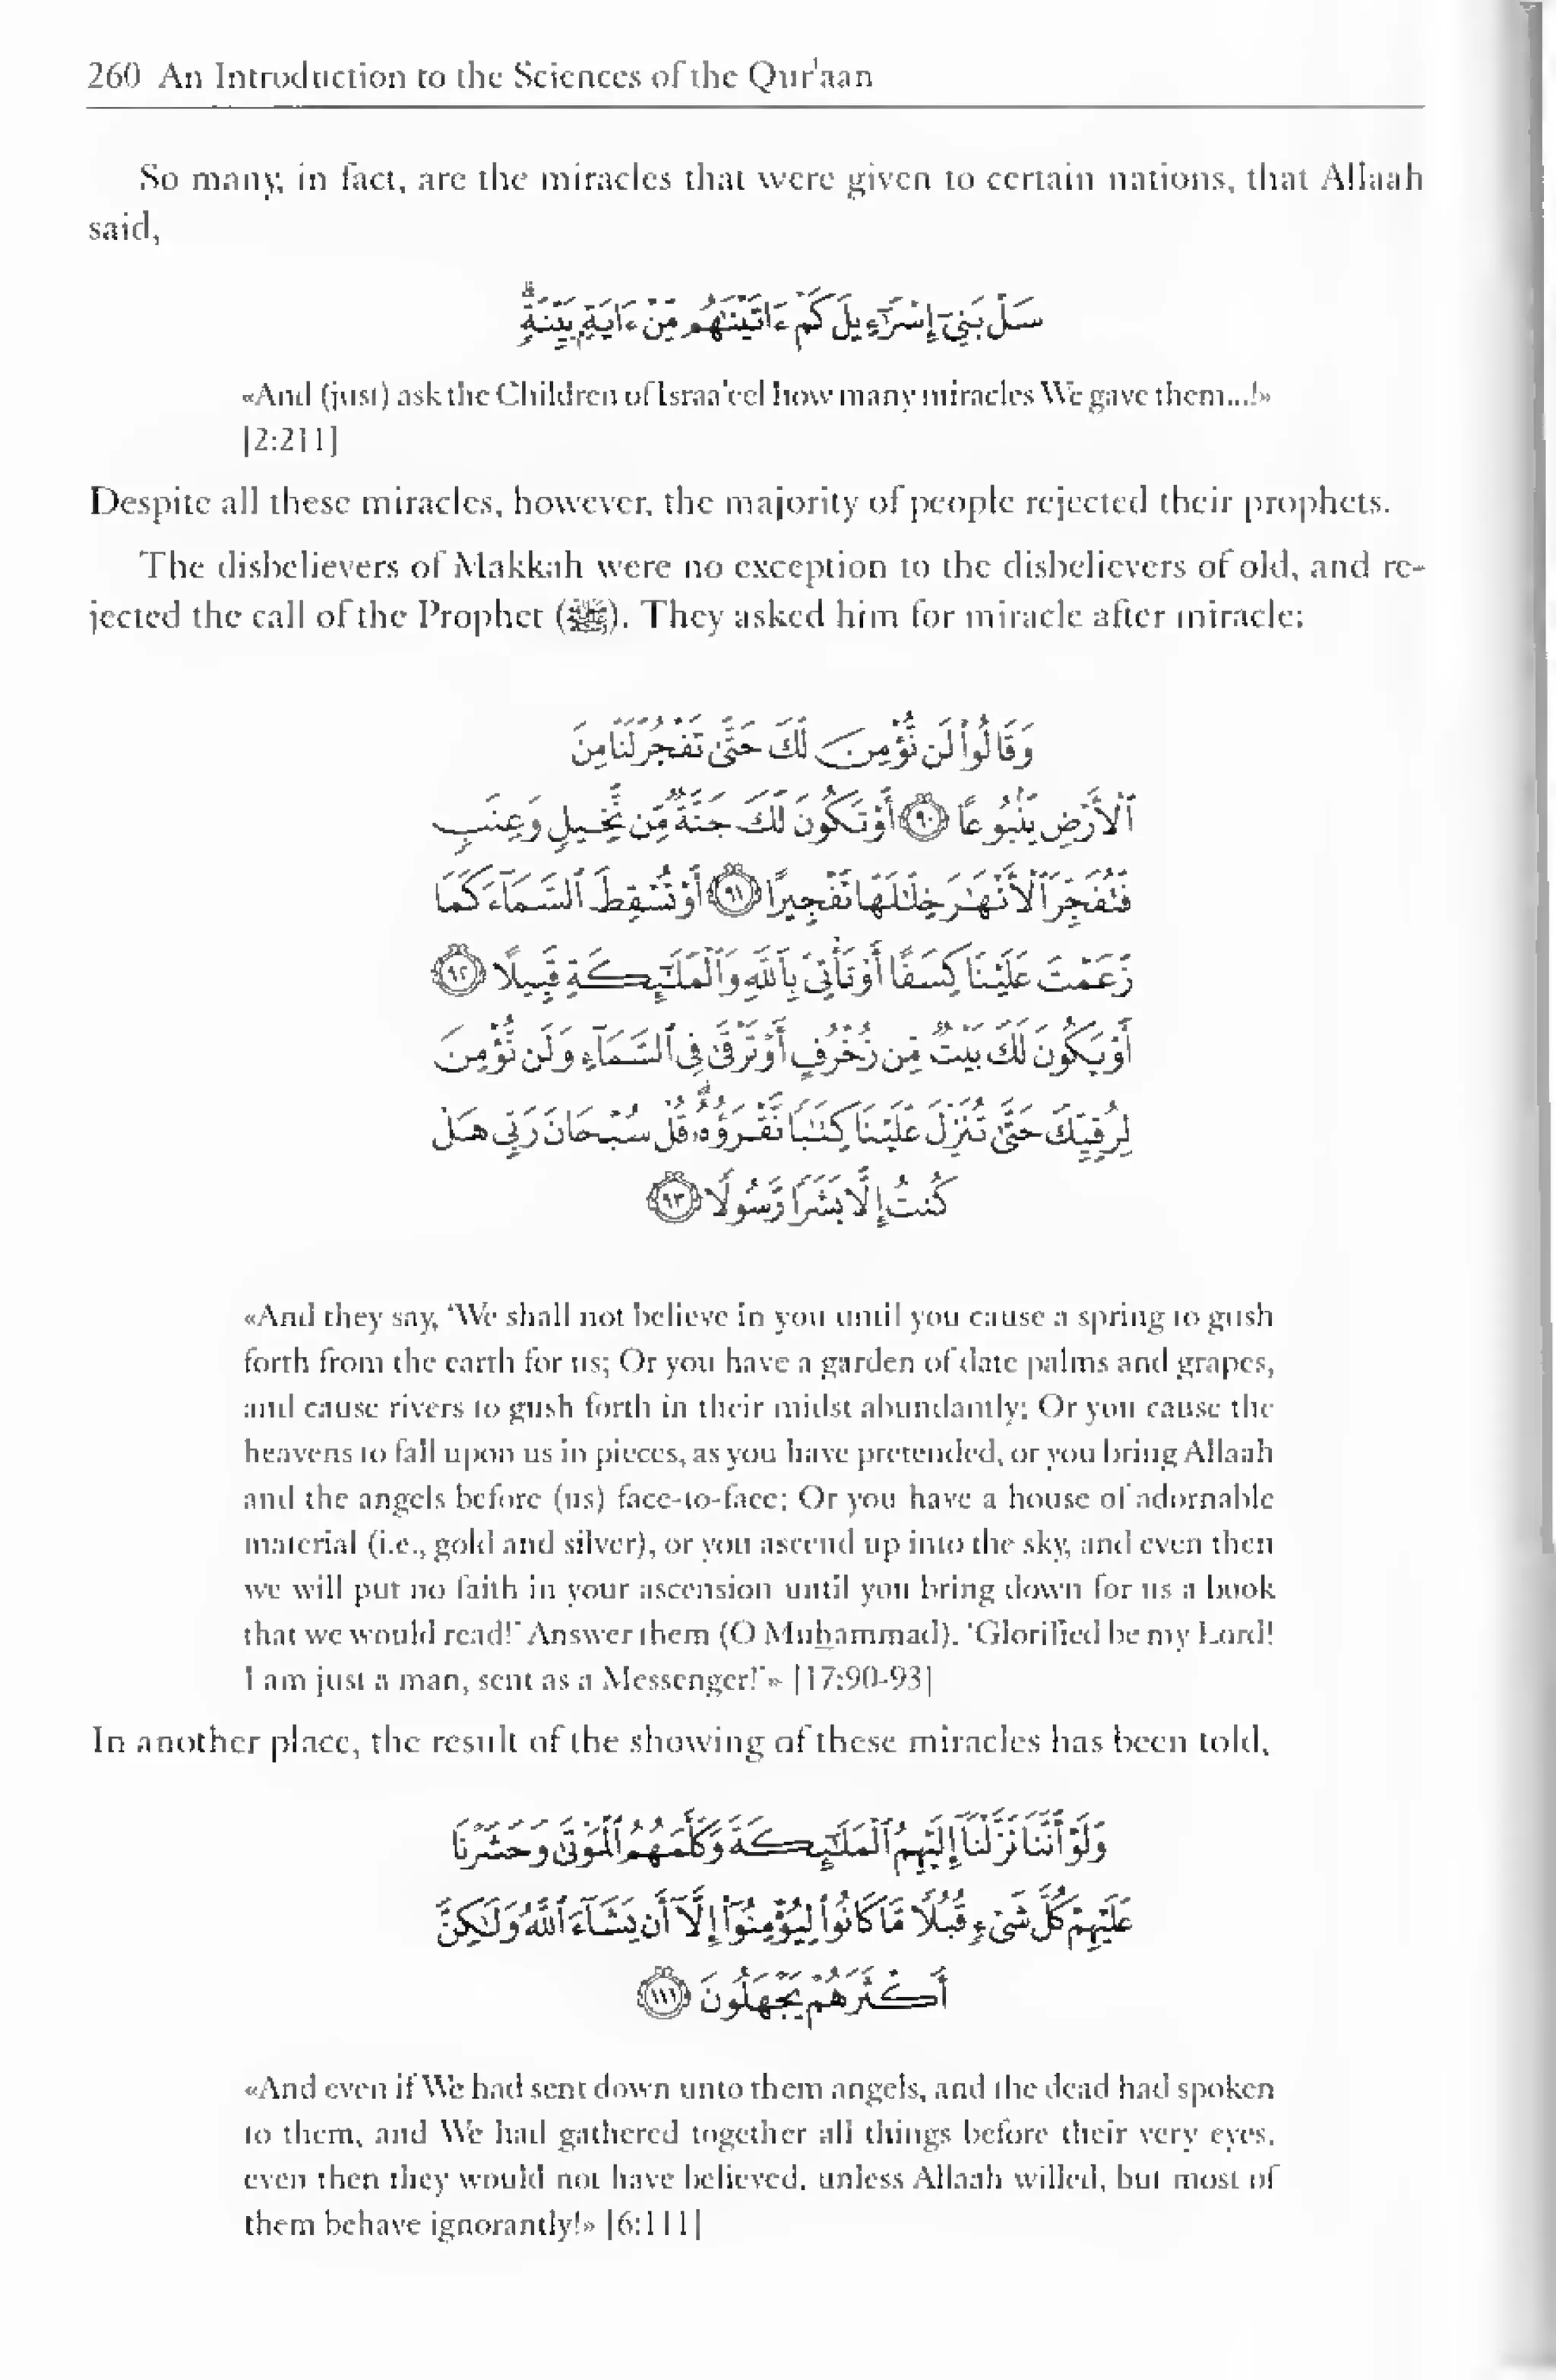 260 An Introduction to the Sciences of the Qur'aan
So many, in fact, are the miracles that were given to certain nations, that Allaah
said,
سَلْ بَنِىٓ إِسْرَٰٓءِيلَ كَمْ ءَاتَيْنَٰهُم مِّنْ ءَايَةٍۭ بَيِّنَةٍۗ
«And (just) ask the Children of Israa'eel how many miracles We gave them...!»
[2:211]
Despite all these miracles, however, the majority of people rejected their prophets.
The disbelievers of Makkah were no exception to the disbelievers of old, and re-
jected the call of the Prophet (ﷺ). They asked him for miracle after miracle:
وَقَالُوا۟ لَن نُّؤْمِنَ لَكَ حَتَّىٰ تَفْجُرَ لَنَا مِنَ
ٱلْأَرْضِ يَنۢبُوعًا ٩٠ أَوْ تَكُونَ لَكَ جَنَّةٌ مِّن نَّخِيلٍ وَعِنَبٍ
فَتُفَجِّرَ ٱلْأَنْهَٰرَ خِلَٰلَهَا تَفْجِيرًا ٩١ أَوْ تُسْقِطَ ٱلسَّمَآءَ كَمَا
زَعَمْتَ عَلَيْنَا كِسَفًا أَوْ تَأْتِىَ بِٱللَّهِ وَٱلْمَلَٰٓئِكَةِ قَبِيلًا ٩٢
أَوْ يَكُونَ لَكَ بَيْتٌ مِّن زُخْرُفٍ أَوْ تَرْقَىٰ فِى ٱلسَّمَآءِ وَلَن نُّؤْمِنَ
لِرُقِيِّكَ حَتَّىٰ تُنَزِّلَ عَلَيْنَا كِتَٰبًا نَّقْرَؤُهُۥۗ قُلْ سُبْحَانَ رَبِّى هَلْ
كُنتُ إِلَّا بَشَرًا رَّسُولًا ٩٣
«And they say, 'We shall not believe in you until you cause a spring to gush
forth from the earth for us; Or you have a garden of date palms and grapes,
and cause rivers to gush forth in their midst abundantly; Or you cause the
heavens to fall upon us in pieces, as you have pretended, or you bring Allaah
and the angels before (us) face-to-face; Or you have a house of adornable
material (i.e., gold and silver), or you ascend up into the sky, and even then
we will put no faith in your ascension until you bring down for us a book
that we would read!' Answer them (O Muhammad), 'Glorified be my Lord!
I am just a man, sent as a Messenger!'» [17:90-93]
In another place, the result of the showing of these miracles has been told,
وَلَوْ أَنَّنَا نَزَّلْنَآ إِلَيْهِمُ ٱلْمَلَٰٓئِكَةَ وَكَلَّمَهُمُ ٱلْمَوْتَىٰ وَحَشَرْنَا
عَلَيْهِمْ كُلَّ شَىْءٍ قُبُلًا مَّا كَانُوا۟ لِيُؤْمِنُوٓا۟ إِلَّآ أَن يَشَآءَ ٱللَّهُ وَلَٰكِنَّ
أَكْثَرَهُمْ يَجْهَلُونَ ١١١
«And even if We had sent down unto them angels, and the dead had spoken
to them, and We had gathered together all things before their very eyes,
even then they would not have believed, unless Allaah willed, but most of
them behave ignorantly!» [6:111]